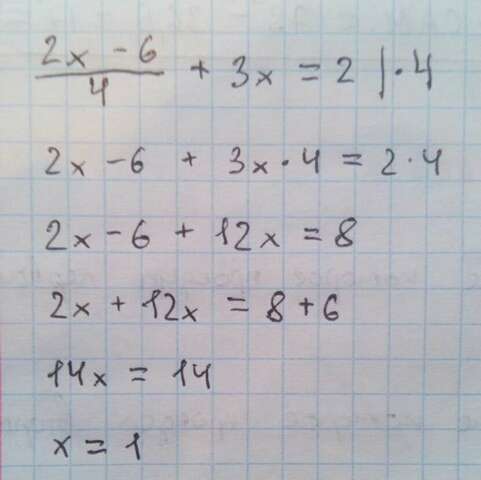 2x - 6
4
+ 3x = 2 | · 4
2x - 6 + 3x · 4 = 2 · 4
2x - 6 + 12x = 8
2x + 12x = 8 + 6
14x = 14
x = 1